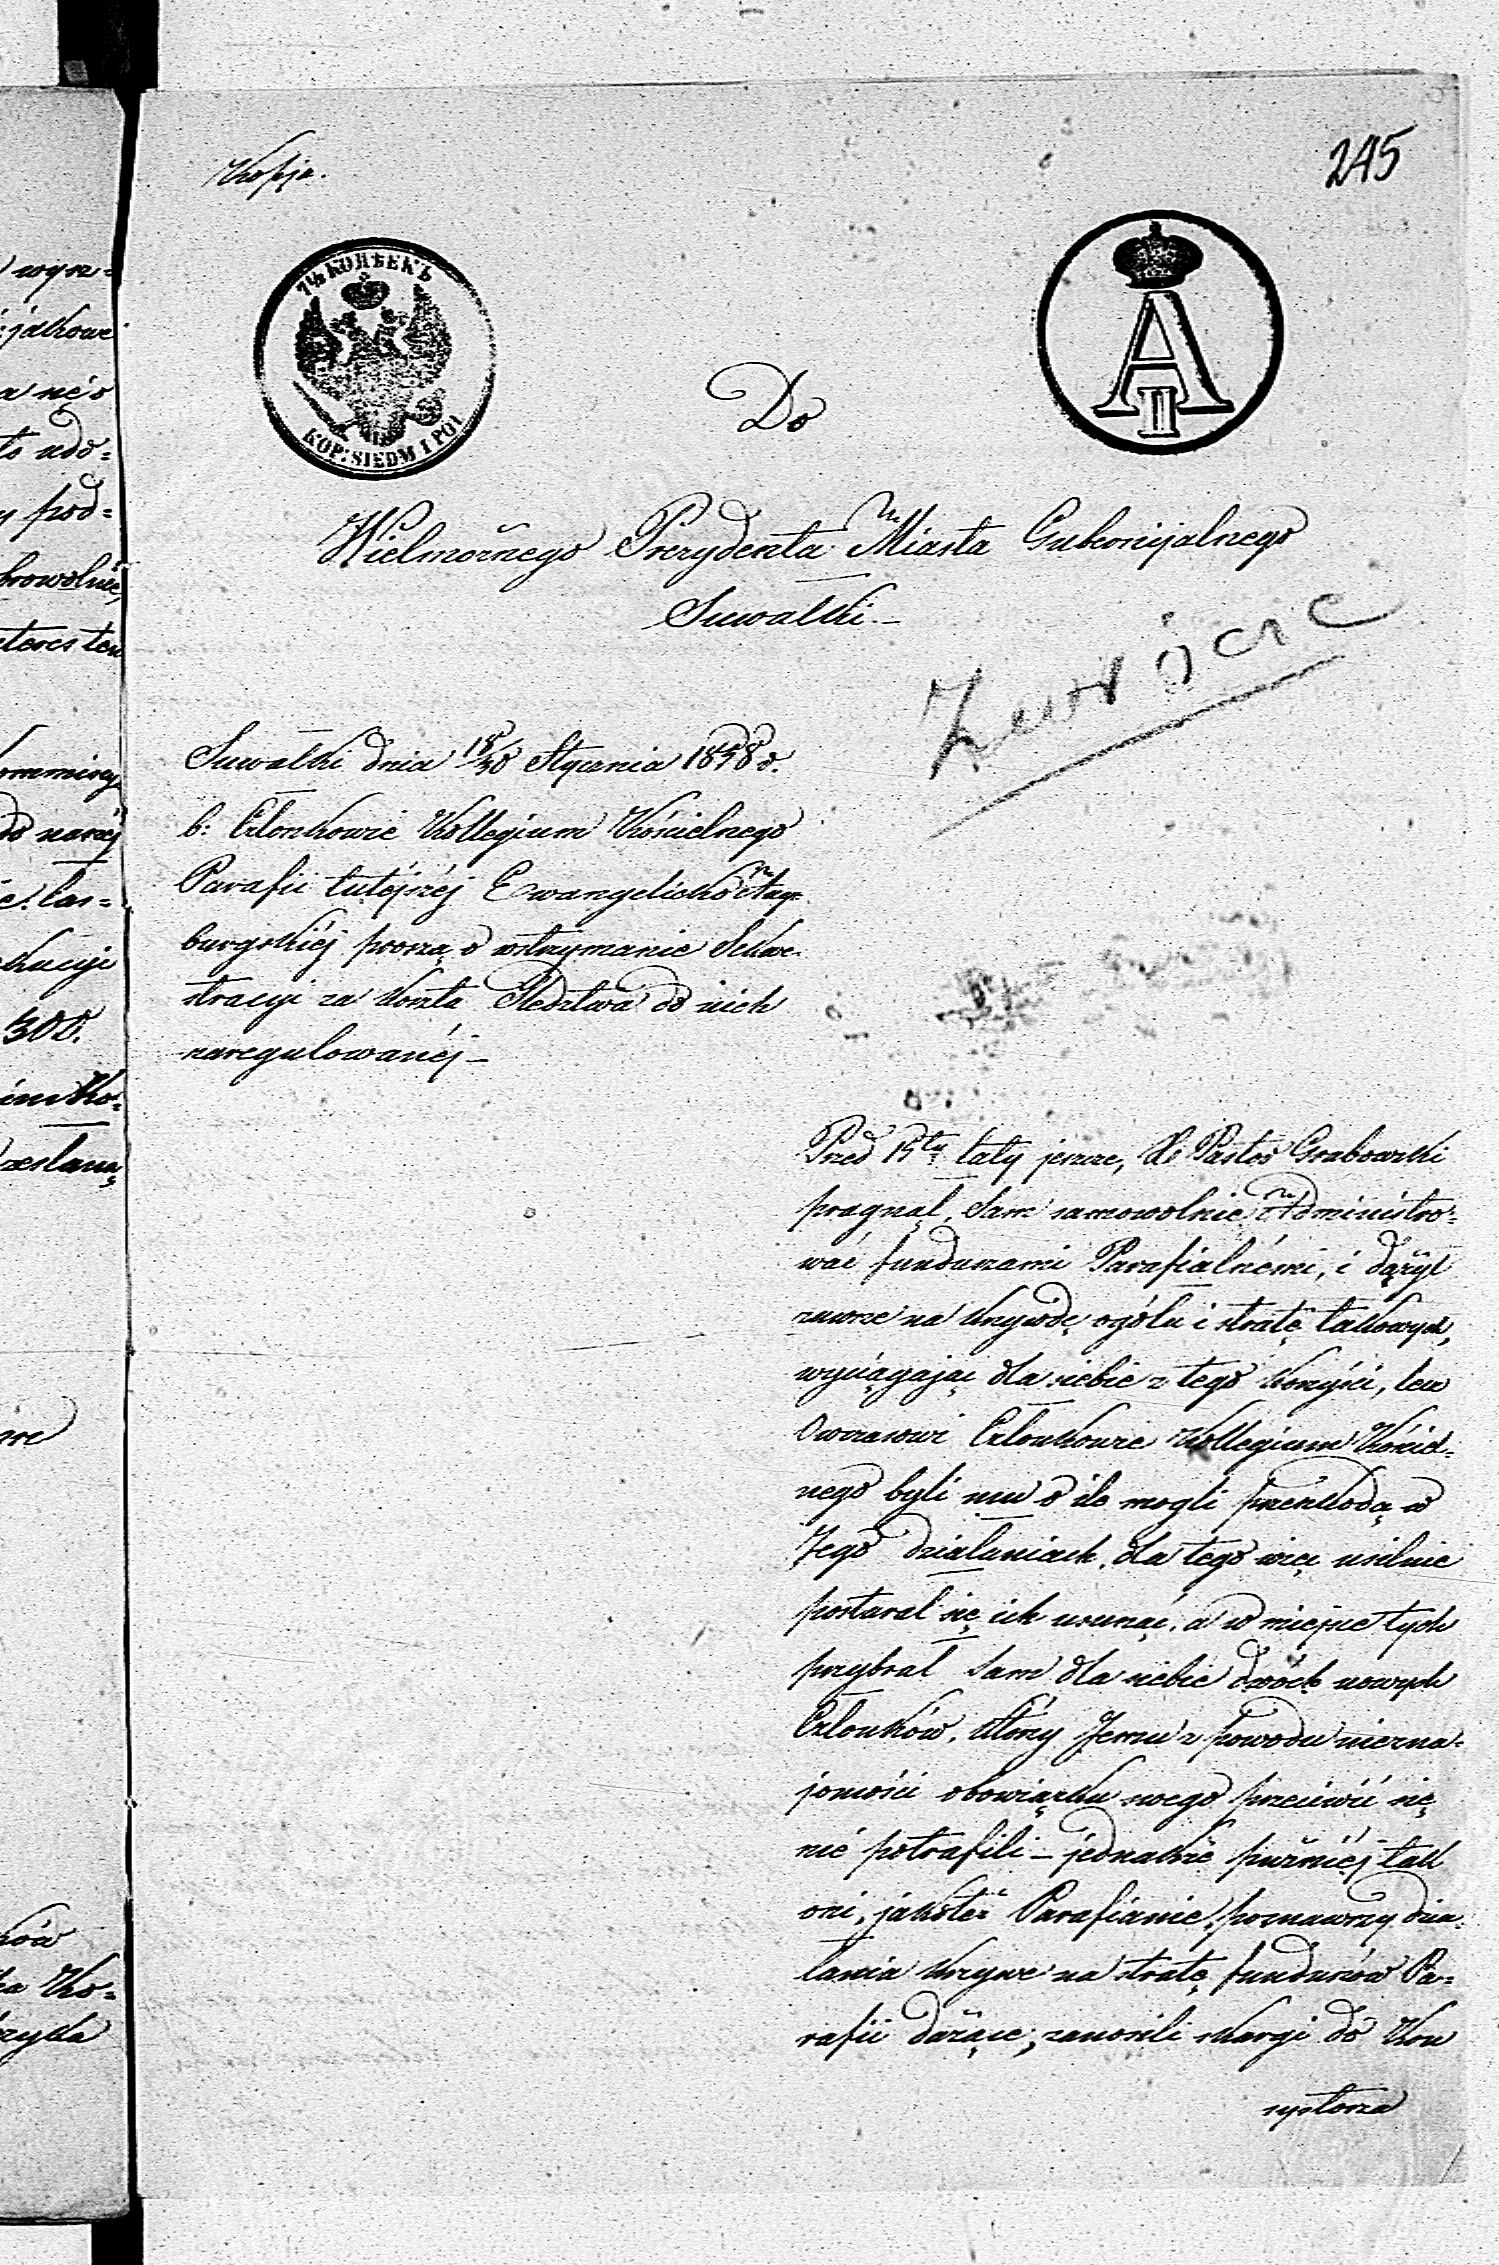 Kopja.
245
7½ КОПѢЕКЪ
KOP: SIEDM I PÓŁ
A
II
Do
Wielmożnego Prezydenta Miasta Gubernijalnego
Suwałki. —
Suwałki dnia 18/30 Stycznia 1858 r.
b: Członkowie Kollegium Kościelnego
Parafii tutéjszéj Ewangelicko Aug-
burgskiéj proszą o wstrzymanie Sekwe-
stracyi za koszta Śledztwa do nich
naregulowanéj —
Przed 15tu laty jeszcze, Xe Pastor Grabowski
pragnął, Sam samowolnie Administro-
wać funduszami Parafialnémi, i dążył
zawsze na krzywdę ogółu i stratę takowych,
wyciągając dla siebie z tego korzyści, lecz
Owczasowi Członkowie Kollegium Kościel-
nego byli mu o ile mogli przeszkodą w
Jego działaniach, dla tego więc usilnie
postarał się ich usunąć, a w miejsce tych
przybrał Sam dla siebie dwóch nowych
Członków, którzy Jemu z powodu niezna-
jomości obowiązku swego przeciwić się
nié potrafili — jednakże puźniéj tak
oni, jakoteż Parafianie, poznawszy dzia-
łania krzywe na stratę funduszów Pa-
rafii dążące, zanosili skargi do Kon
systorza
wyn-
jalkowe
to udo-
pod-
browolnie,
do naszéj
300.
zesłaną
ków